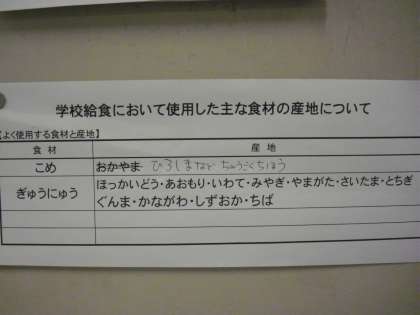 学校給食において使用した主な食材の産地について
【よく使用する食材と産地】
食材 産地
こめ おかやま ひろしまなど ちゅうごくちほう
ぎゅうにゅう ほっかいどう・あおもり・いわて・みやぎ・やまがた・さいたま・とちぎ
ぐんま・かながわ・しずおか・ちば